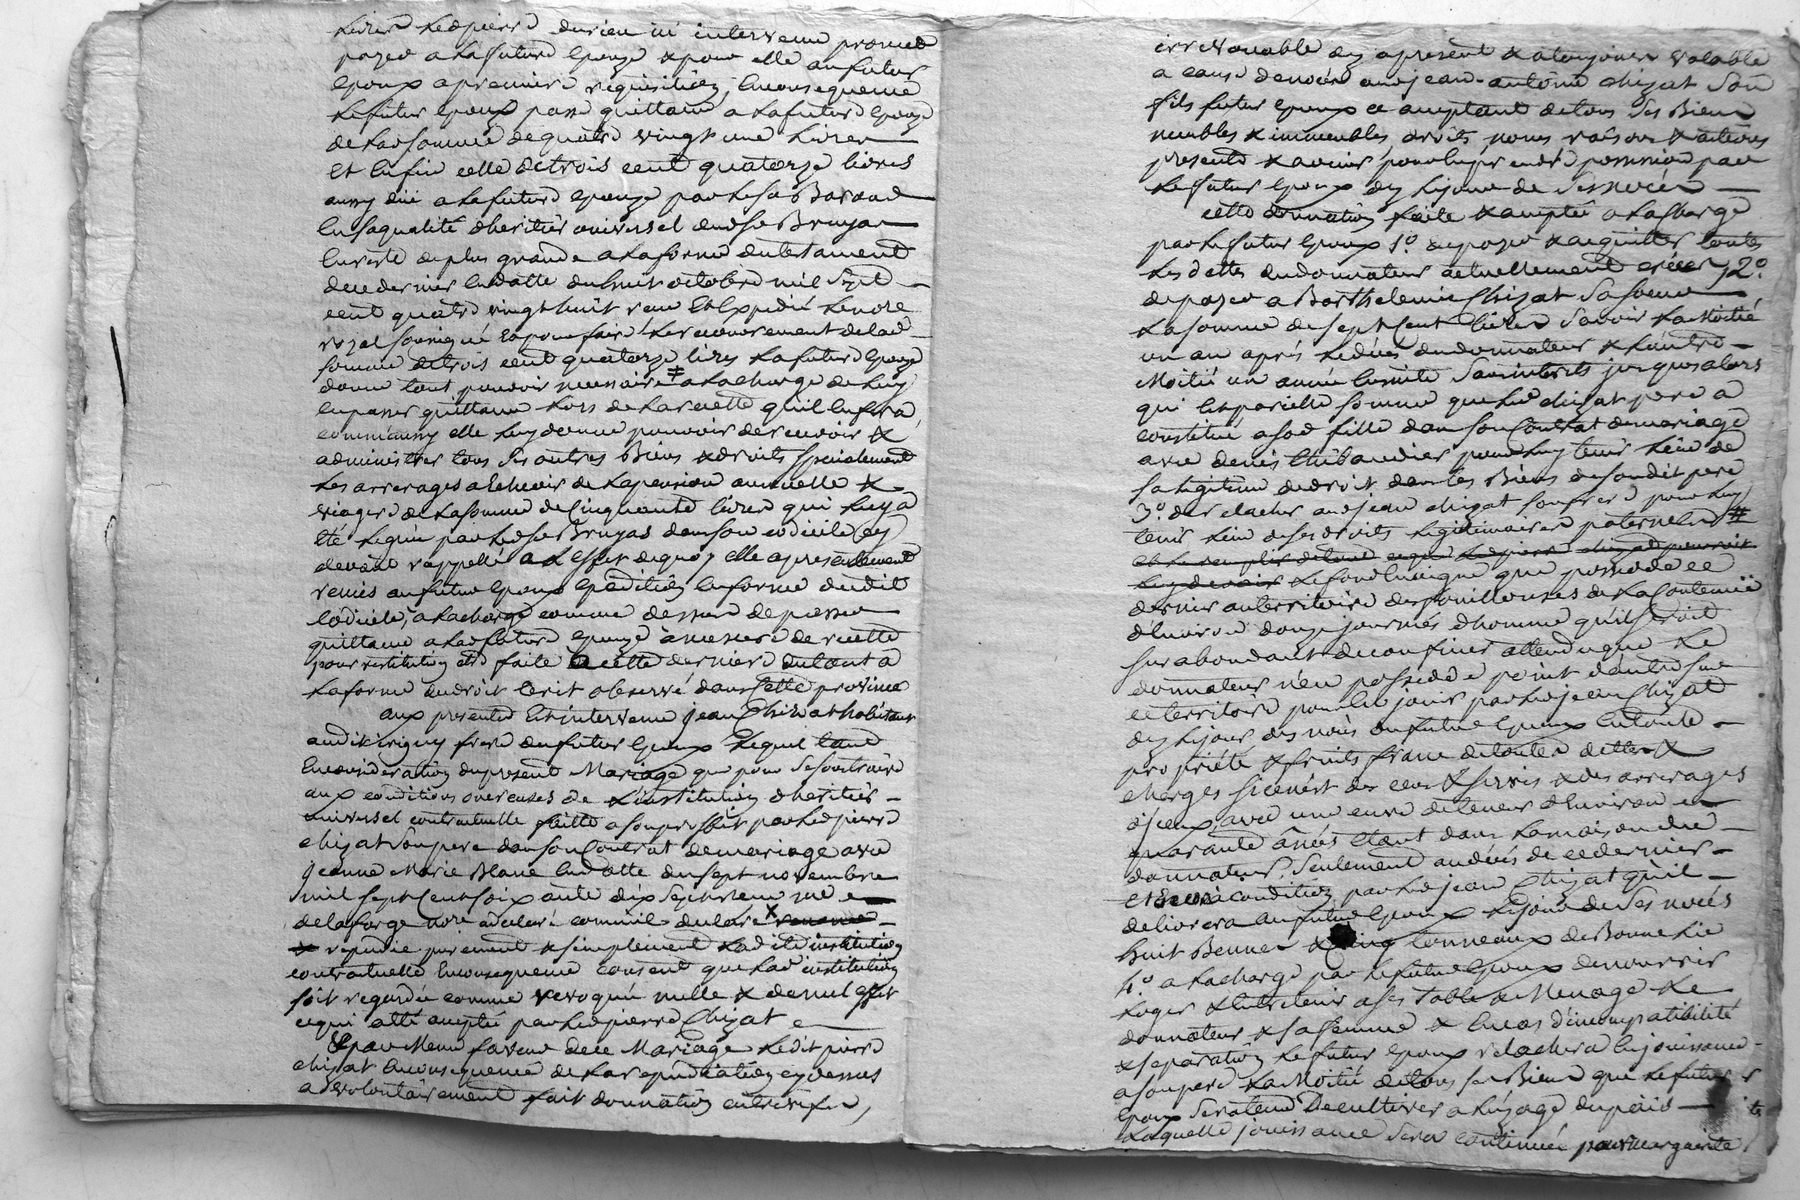 Livres ledpierre durieu ici intervenu promet
payer a lafuture Epouze & pour elle aufutur
Epoux a premiere requisition, Enconsequence
Lefutur Epoux passe quittance a lafuture Epouze
de lasomme de quatre vingt une Livres
Et Enfin celle detrois cent quatorze livres
aussy due a lafuture epouze par le sr
En saqualité dheritier universel dudsr Bruyas
Enreste de plus grande a laforme dutestament
de ce dernier Endatte du huit octobre mil sept
cent quatre vingt huit recu Et Expedié le nore
royal soussigné Et pour faire le recouvrement delad
somme detrois cent quatorze livres la future Epouze
donne tout pouvoir necessaire # a lacharge de luy
En passer quittance Lors de la recette quil En fera
comme aussy elle luy donne pouvoir de recevoir &
administrer tous ses autres Biens & droits specialement
Les arrerages a Echeoir de la pension annuelle &
viagere de lasomme de Cinquante livres qui luy a
Eté leguée par ledsr Bruyas dans son codicile Cy
devant rappellé a L Effet dequoy elle a presentement
remis aufutur Epoux Expedition En forme dudit
Codicile, a lacharge comme dessus de passer
quittance a lad future Epouze a mesure de recette
pour restitution etre faite a cette derniere du tout a
Laforme du droit Ecrit observé dans Cette province
aux presentes Est intervenu jean Chizat habitant
audit irigny frere dufutur Epoux Lequel tant
En consideration du present Mariage que pour se soustraire
aux conditions onereuses de Linstitution dheritier
universel contractuelle faitte a son proffit par ledpierre
chizat son pere dans son Contrat de mariage avec
jeanne Marie Blanc Endatte du sept novembre
mil sept Cent soixante dix sept recu me
delaforge nore a declaré comme il declare x renoncer
& repudie purement & simplement ladite institution
contractuelle Enconsequence consent que lad institution
soit regardée comme revoquée nulle & de nul effet
cequi a été accepté par ledpierre Chizat
& par Meme faveur de ce Mariage Ledit pierre
chizat Enconsequence de la repudiation cy dessus
a volontairement fait donnation entrevifs,
irrevocable des apresent & atoujours valable
a cause denoces aud jean-antoine chizat Son
fils futur Epoux ce acceptant detous Ses Biens
meubles & immeubles droits noms raisons & actions
presents & avenir pour luy prendre possession par
Lefutur Epoux des lejour de Sesnoces
cette donnation faite & acceptée a lacharge
par lefutur Epoux 1.° depayer & acquitter toutes
Les dettes dudonnateur actuellement créées, 2.°
depayer a Barthelemie Chizat sa soeur
Lasomme desept Cent livres savoir Lamoitié
un an après ledécès dudonnateur & Lautre
Moitié un année Ensuite sans interets jusques alors
qui Est pareille somme que led chizat pere a
constitué asad fille dans son Contrat demariage
avec denis thibaudier pour luy tenir lieu de
Salegitime dedroit dans les Biens desondit pere
3.° de relacher aud jean chizat son frere pour luy
tenir lieu de ses droits legitimaires paternels #
et le remplir detout cequi ledpierre chizat pourroit
luy devoir Lefond Enseigne que possede ce
dernier auterritoire des de la Contenue
d'Environ douze journées dhomme quil seroit
surabondant deconfiner attendu que le
donnateur nen possede point dautre sur
ce territoire pour En jouir par led jean Chizat
des le jour des noces dufutur Epoux Entoute
propriété & fruits franc detoutes dettes &
charges sice nest des cens & servis & des arrerages
diceux avec une cuve de teneur d'Environ
quarante anées Etant dans lamaison du
donnateur, seulement audécés de ce dernier
condition par led jean Chizat quil
delivrera aufutur Epoux lejour de Ses noces
huit Bennes & cinq tonneaux de Bonne Lie
4.° a lacharge par lefutur Epoux denourrir
Loger & Entretenir a Ses Table & Menage Le
donnateur & sa femme & Encas d'incompatibilité
& separation Lefutur Epoux relachera En jouissance
a son pere Lamoitié detous ses Biens que lefutur
Epoux sera tenu De cultiver a L'usage dupaïs
Laquelle jouissance sera continuée pour marguerite